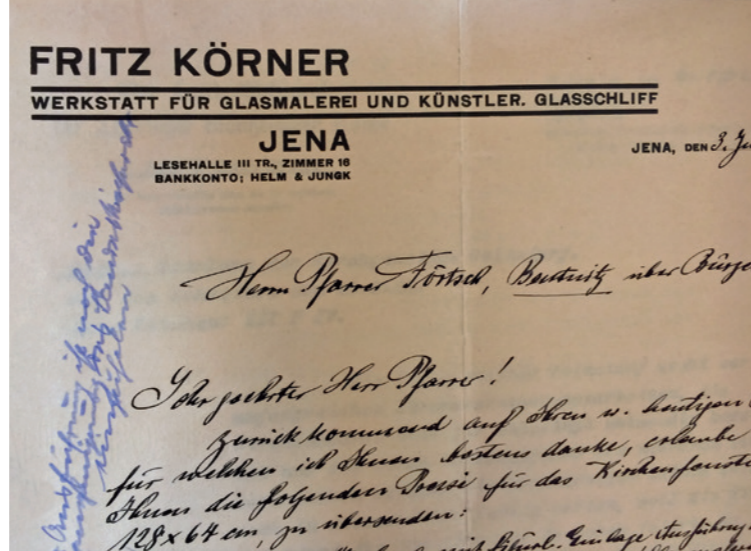 FRITZ KÖRNER
WERKSTATT FÜR GLASMALEREI UND KÜNSTLER. GLASSCHLIFF
JENA
LESEHALLE III TR., ZIMMER 16
BANKKONTO: HELM & JUNGK
JENA, DEN 3. Ju
Herrn Pfarrer Förtsch, Beutnitz über Bürge
Sehr geehrter Herr Pfarrer!
Zurückkommend auf Ihren w. heutigen
für welchen ich Ihnen bestens danke, erlaube
Ihnen die folgenden Preise für das Kirchenfenste
128 x 64 cm, zu übersenden:
mit figürl. Einlage Ausführung
Ausführung ist noch die